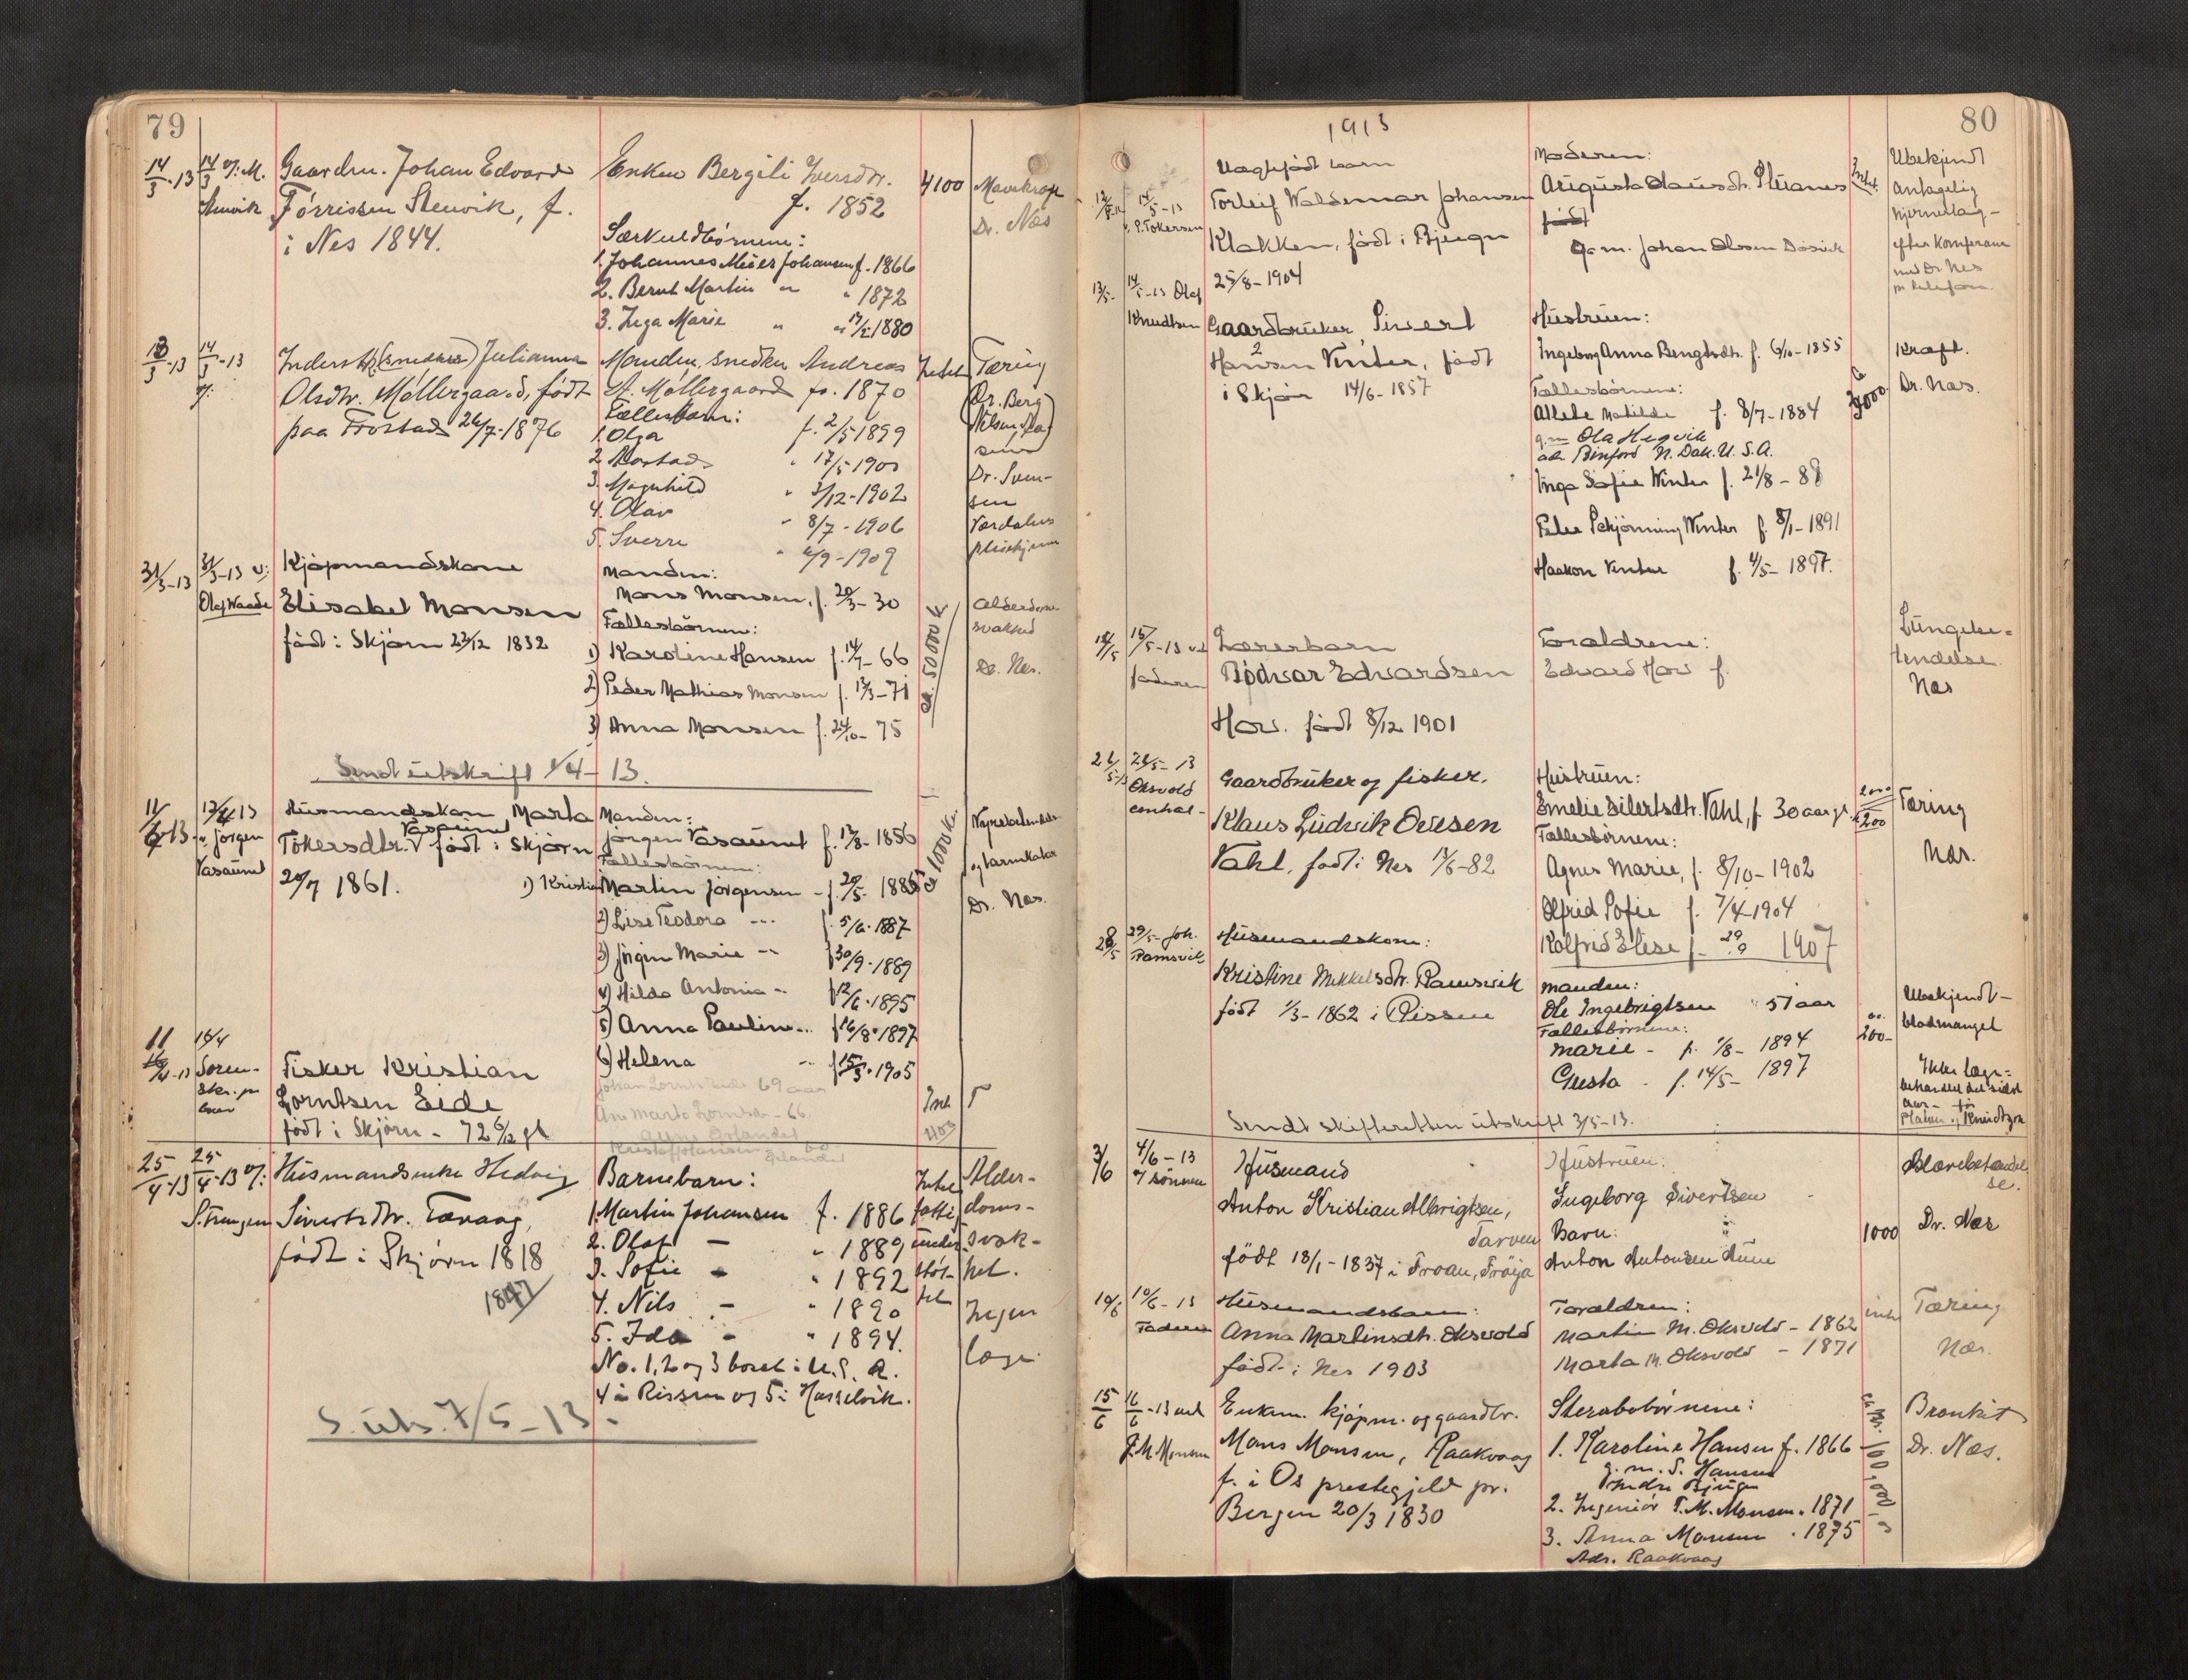 79
14/3-13 14/3 v/. M. Stenvik
Gaardm. Johan Edvard
Tørrissen Stenvik, f.
i Nes 1844.
Enken Bergili Iversdtr.
f. 1852
Særkuldbørnene:
1. Johannes Meier Johansen f. 1866
2. Bernt Martin " " 1872
3. Inga Marie " " 1880
4100
Mavekræft
Dr. Næs
13/3-13 14/3-13
Inderstk (snedker) Julianna
Olsdtr. Møllergaard, født
paa Frostad 26/7-1876
Manden, snedker Andreas
A. Møllergaard fø. 1870
Fællesbarn:
1. Olga f. 2/5 1899
2. " 17/5 1900
3. Magnhild " 3/12-1902
4. Olav " 8/7-1906
5. Sverre " 4/9-1909
Intet
Tæring
Dr. Berg
Nilsen,
Dr. Svensen
Værdalens
pleiehjem
31/3-13 31/3-13 v:
Olaf Waade
Kjøpmandskone
Elisabet Monsen
født i Skjørn 23/12 1832
Manden:
Mons Monsen, f. 20/3-30
Fællesbørnene:
1) Karoline Hansen f. 14/7-66
2) Peder Mathias Monsen f. 13/3-71
3) Anna Monsen f. 24/10-75
ca. 50000 kr
Alderdomssvakhed
Dr. Nes.
Sendt utskrift 1/4-13.
11/4 13 12/4 13
v. Jørgen
Vasaunet
Husmandskon Marta
Tokersdtr. Vasaunet født i Skjørn
20/7 1861.
Manden:
Jørgen Vasaunet f. 17/8-1856
Fællesbørnene:
1) Kristian Martin Jørgensen - f. 29/5 1885
2) Lise Teodora - " f. 5/6-1887
3) Jørgine Marie - " f 30/9-1889
4) Hilda Antonia - " f 12/6-1895
5) Anna Pauline - " f 16/8-1897
6) Helena " f 15/3-1905
1000 kr
Nyrebetændelse
og tarmkatar
Dr. Næs.
11 16/4
Fisker Kristian
Lorntsen Eide
født i Skjørn - 72 6/12 gl
Johan Lornts Eide 69 aar
Ane Marta Lorntsdtr - 66
Int
25/4-13 25/4-13 v/:
S. Frengen
Husmandsenke Hedvig
Sivertsdtr. Tævaag,
født i Skjørn 1818
1847
Barnebarn:
1. Martin Johansen f. 1886
2. Olaf - " 1889
3. Sofie - " 1892
4. Nils - " 1890
5. Ida - " 1894.
No. 1, 2 og 3 bosat i U. S. A.
4 i Rissen og 5 i Hasselvik.
Intet
fattig
under
støt
Alder-
doms-
svak-
het.
Ingen
læge
S. uts. 7/5-13.
80
1913
Uægtefødt barn
Torleif Waldemar Johansen
Klakken, født i Bjugn
25/8-1904
Moderen:
Augusta Clausdtr.
født
g. m. Johan Olsen Døsvik
Intet
Ubekjendt
antagelig
hjerneslag -
efter konferanse
med Dr Nes
pr telefon.
12/5-13 14/5-13
P. Tokersen
13/5- 14/5-13 Olaf
Knudtsen
Gaardbruker Sivert
Hansen Vinter, født
i Skjørn 14/6-1857
Hustruen:
Ingeborg Anna Bengtsdtr. f. 6/10-1855
Fællesbørnene:
Allette Matilde f. 8/7-1884
g. m Ola Hegvik
adr Binford N. Dak. U. S. A.
Inga Sofie Winter f. 21/8-88
Peder Schjønning Winter f. 8/1-1891
Haakon Vinter f. 4/5-1897.
Kræft.
Dr. Næs.
14/5 15/5-13 ved
faderen
Lærerbarn
Bødvar Edvardsen
Hov. født 8/12 1901
Forældrene:
Edvard Hov f.
Lungebe-
tendelse.
Næs
26/5-13 26/5-13
Oksvold
central -
Gaardbruker og fisker.
Klaus Ludvik Ovesen
Vahl, født i Nes 13/6-82
Hustruen:
Emelie Eilertsdtr. Vahl, f 30 aar gl
Fællesbørnene:
Agnes Marie, f. 8/10-1902
Olfrid Sofie f. 7/4-1904
Rolfrid Elise f. 29/9 1907
2000
1200
Tæring
Næs.
28/5 29/5- Joh.
Ramsvik
Husmandskone:
Kristine Mikkelsdtr. Ramsvik
født 1/3-1862 i Rissen
Manden:
Ole Ingebrigtsen 51 aar
Fællesbørnene:
Marie - f. 1/8-1894
Gusta - f. 14/5-1897
ca.
200-
Ubekjendt -
blodmangel
Ikke læge-
behandlet det sidste
aar -
Sendt skifteretten utskrift 3/5-13.
3/6 4/6-13
v/ sønnen
Husmand
Anton Kristian Albrigtsen,
Tarven
født 18/1-1837 i Froan, Frøya
Hustruen:
Ingeborg Sivertsen
Barn:
Anton Antonsen Aune
1000
Blærebetændel
se.
Dr. Næs
10/6 10/6-13
Faderen
Husmandsbarn:
Anna Martinsdtr. Oksvold
født i Nes 1903
Forældren:
Martin M. Oksvold - 1862
Marta M. Oksvold - 1871
intet
Tæring
Næs.
15/6 16/6-13 ved
P. M. Monsen
Enkem. kjøpm. og gaardbr.
Mons Monsen, Raakvaag
f. i Os prestegjeld pr.
Bergen 20/3 1830
Sterbebørnene:
1. Karoline Hansen f. 1866
g. m. S. Hansen
Indre Bjugn
2. Ingeniør P. M. Monsen. 1871
3. Anna Monsen . 1875
Adr. Raakvaag
ca kr. 100,000
Bronkit
Dr. Næs.